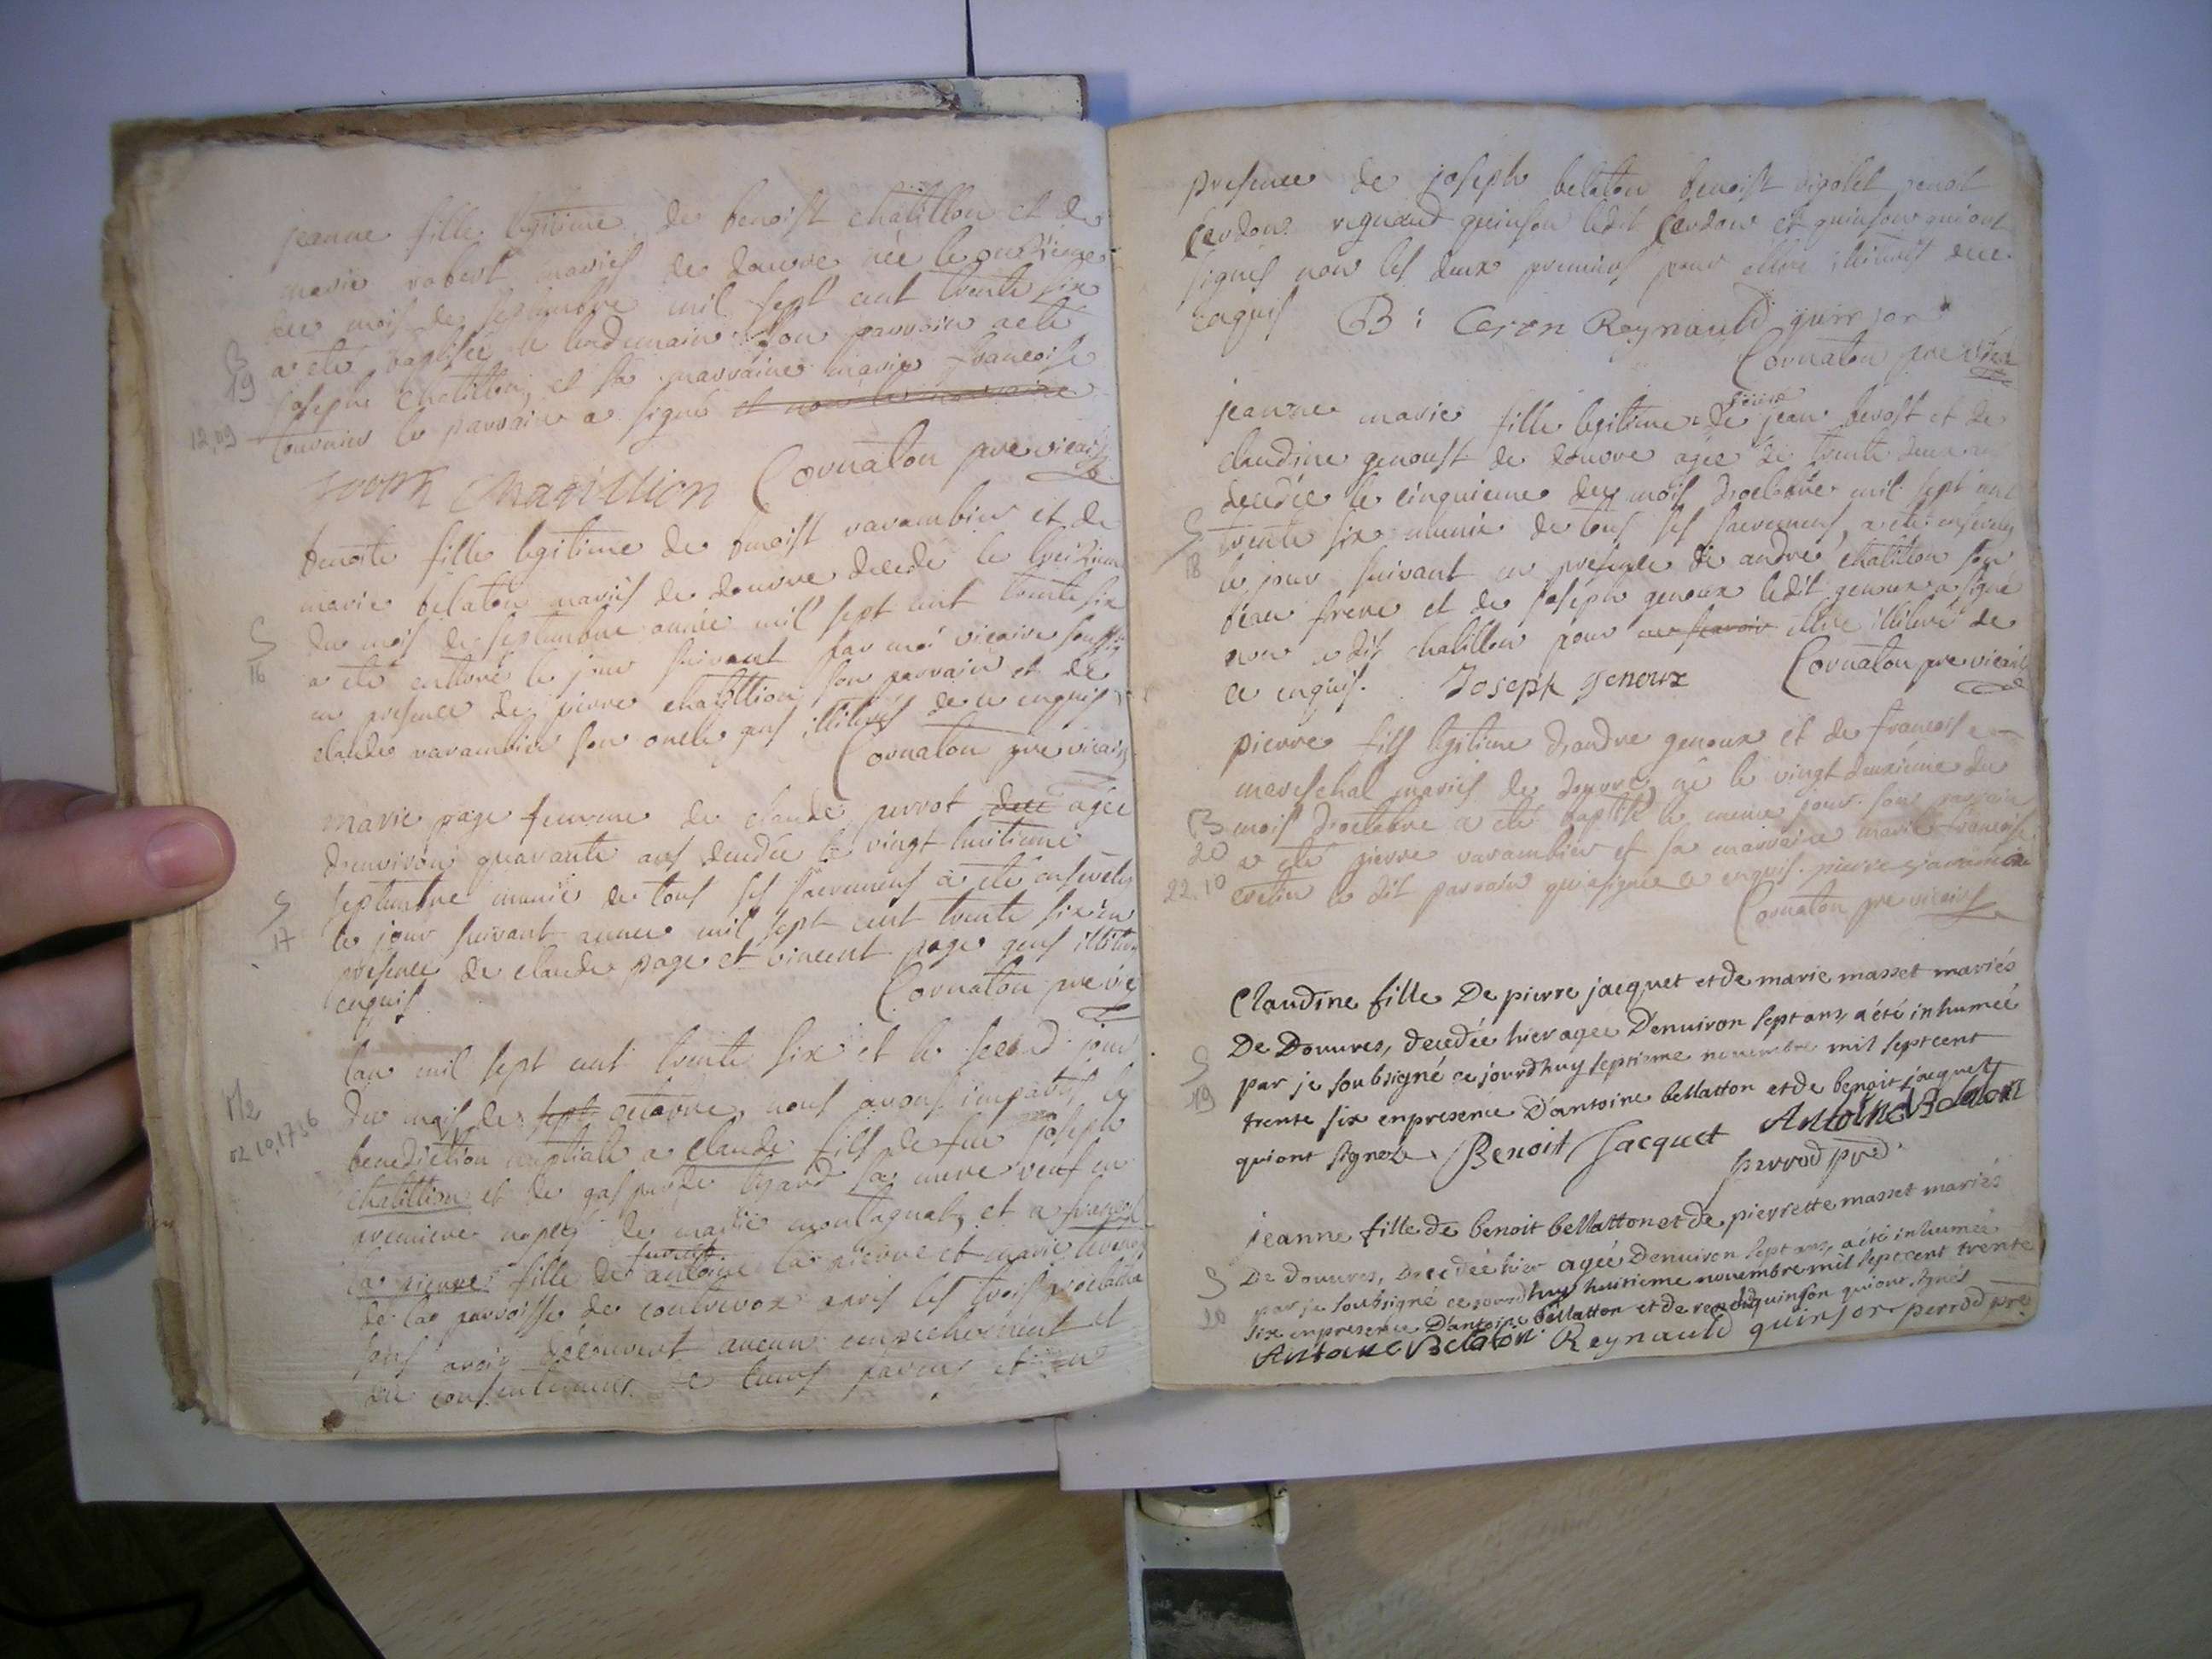 jeanne fille legitime de benoist chatillon et de
marie robert mariés de douvre née le onzieme
du mois de septembre mil sept cent trente six
B a eté baptisée le lendemain son parrain a eté
19 joseph chatillon, et sa marraine marie francoise
12,09 tournier le parrain a signé et non la marraine
Joseph Chatillion Cornaton pre vicaire
benoite fille legitime de benoist varambier et de
marie belaton mariés de douvre decedé le treizieme
S du mois de septembre année mil sept cent trente six
16 a eté enterré le jour suivant par moi vicaire soussig
en presence de pierre chatillion son parrain et de
claude varambier son oncle gens illiterés de ce enquis
Cornaton pre vicaire
marie page femme de claude perrot dece agée
d'environ quarante ans decedée le vingt huitieme
S septembre munie de tous ses sacremens a eté ensevely
17 le jour suivant annee mil sept cent trente six en
presence de claude page et vincent page gens illiter
enquis Cornaton pre vic
lan mil sept cent trente six et le second jour
M2 du mois de sept octobre, nous avons imparti la
02,10,1736 benediction nuptiale a claude fils de feu joseph
chatillion et de gasparde sa mere veuf en
premiere nopces de marie montagnat, et a francoise
la pierre fille de antoine la pierre et marie
de la parroisse de apres les trois
sans avoir decouvert aucun empechement et
du consentement de leurs parens et en
presence de joseph belaton benoist rigolet benoit
cerdon reynaud quinson ledit cerdon et quinson qui ont
signés non les deux premiers pour estre illiterés de ce
enquis B: Ceron Reynauld quinson
Cornaton pre vica
jeanne marie fille legitime de jean berost et de
claudine genoust de douvre agée de trente deux
decedée le cinquieme du mois d'octobre mil sept cent
S trente six munie de tous ses sacremens, a eté ensevely
18 le jour suivant en presence de andré chatillon son
beau frere et de joseph genoux ledit genoux a signé
non ledit chatillon pour ne scavoir estre illiteré de
ce enquis. Joseph Genoux Cornaton pre vicaire
pierre fils legitime d'andre genoux et de francoise
mareschal mariés de douvre, né le vingt deuxieme du
B mois d'octobre a eté baptisé le meme jour son parrain
20 a eté pierre varambier et sa marraine marie francoise
22.10 le dit parrain qui a signé ce enquis. pierre varambier
Cornaton pre vicaire
Claudine fille De pierre jacquet et de marie masset mariés
De Douures, decedée hier agée D'enuiron sept ans, a été inhumeé
S par je soubsigné ce jourdhuy septieme nouembre mil sept cent
19 trente six en presence D'antoine bellatton et de benoit jacquet
qui ont signés. Benoit Jacquet Antoine Belaton
perrod pre
jeanne fille de benoit bellatton et de pierrette masset mariés
S De douures, Decedée hier agée Denuiron sept ans, a été inhumeé
par je soubsigné ce jourdhuy huitieme nouembre mil sept cent trente
20 six en presence D'antoine bellatton et de renaud quinson qui ont signés
Antoine Belaton Reynauld quinson perrod pre